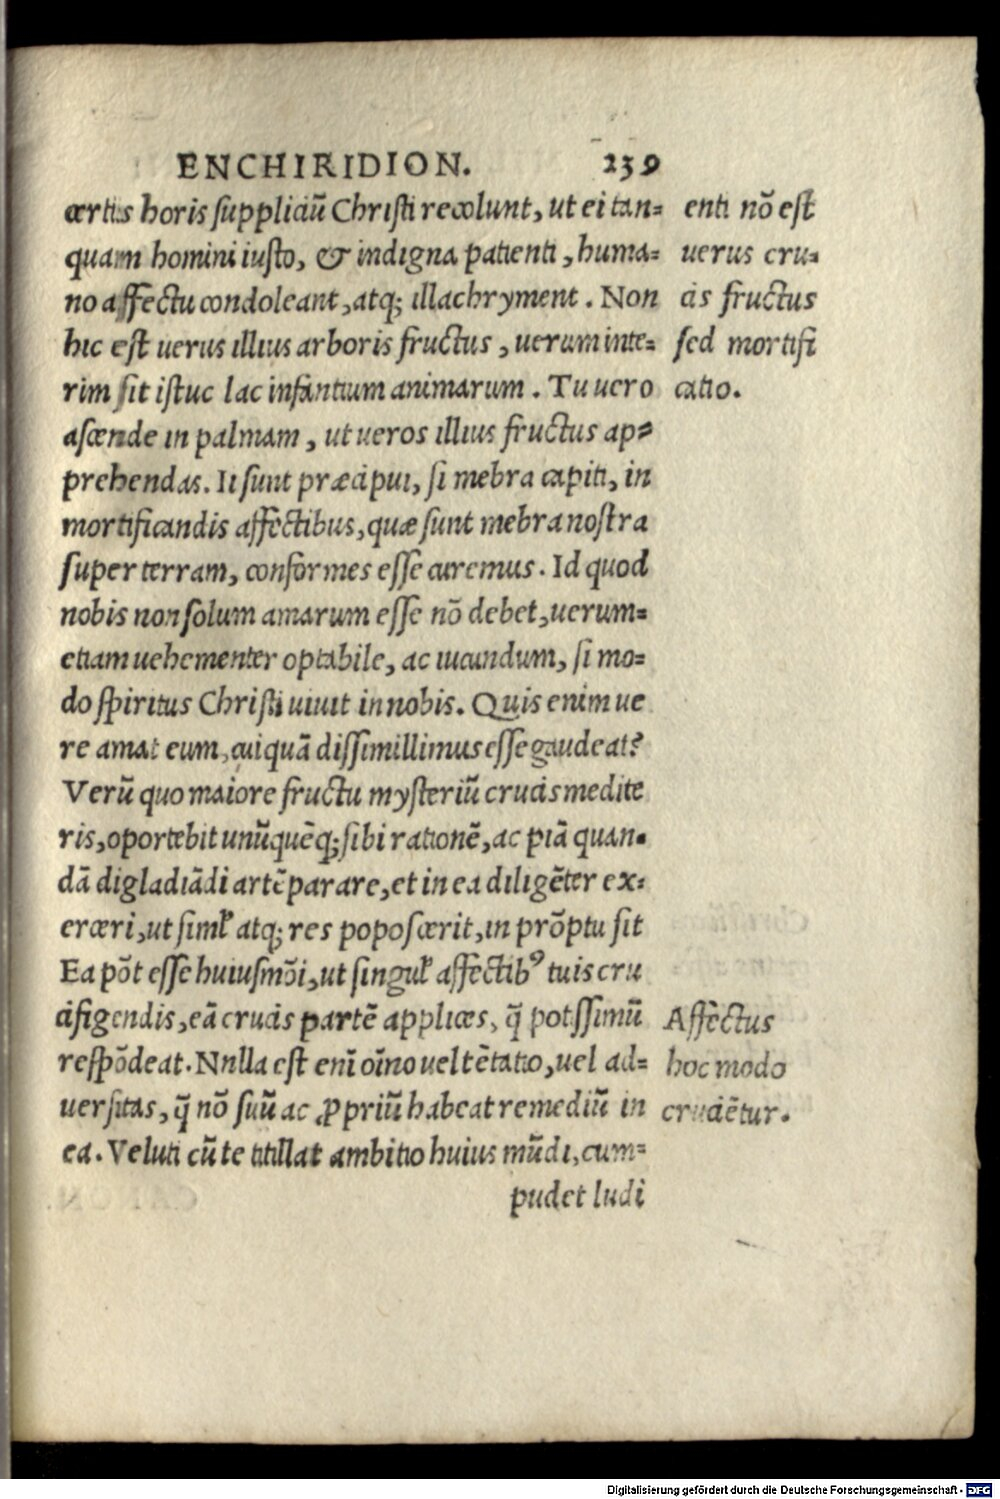 ENCHIRIDION. 239
certis horis suppliciū Christi recolunt, ut ei tan=
quam homini iusto, & indigna patienti, huma=
no affectu condoleant, atq; illachryment. Non
hic est uerus illius arboris fructus, uerum inte=
rim sit istuc lac infantium animarum. Tu uero
ascende in palmam, ut ueros illius fructus ap=
prehendas. Ii sunt præcipui, si mebra capiti, in
mortificandis affectibus, quæ sunt mebra nostra
super terram, conformes esse curemus. Id quod
nobis non solum amarum esse nō debet, uerum=
etiam uehementer optabile, ac iucundum, si mo=
do spiritus Christi uiuit in nobis. Quis enim ue
re amat eum, cui quā dissimillimus esse gaudeat?
Verū quo maiore fructu mysteriū crucis medite
ris, oportebit unūquēq; sibi rationē, ac piā quan=
dā digladiādi artē parare, et in ea diligēter ex=
erceri, ut siml' atq; res poposcerit, in prōptu sit
Ea pōt esse huiusmōi, ut singul' affectibꝰ tuis cru
cifigendis, eā crucis partē applices, q̄ potissimū
respōdeat. Nnlla est enī oīno uel tētatio, uel ad=
uersitas, q̄ nō suū ac ꝓpriū habeat remediū in
ea. Veluti cū te titillat ambitio huius mūdi, cum=
pudet ludi
enti nō est
uerus cru=
cis fructus
sed mortifi
catio.
Affectus
hoc modo
cruciētur.
Digitalisierung gefördert durch die Deutsche Forschungsgemeinschaft - DFG